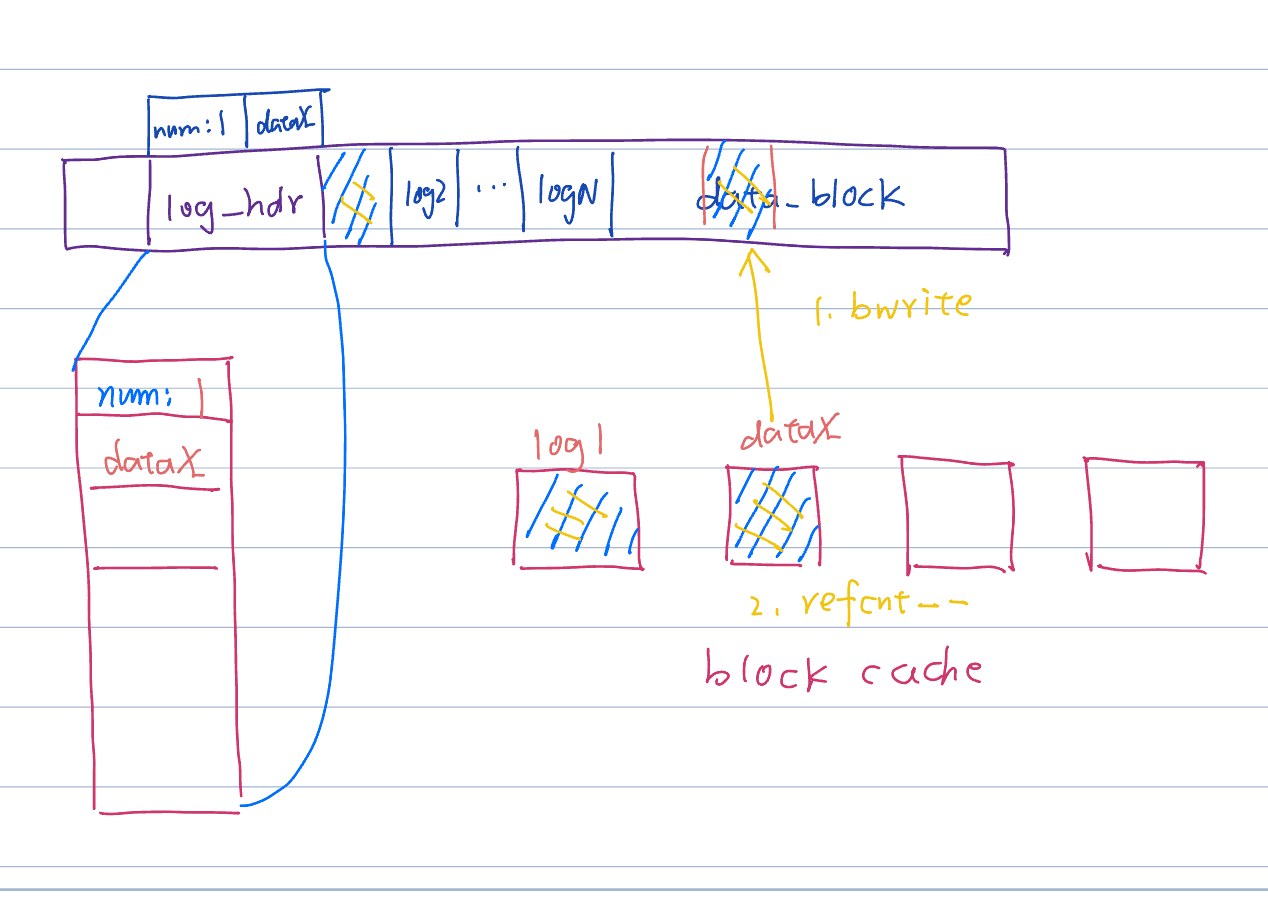 num:1 dataX
log_hdr log2 ... logN data_block
1. bwrite
num: 1
dataX
log1 dataX
2. refcnt--
block cache